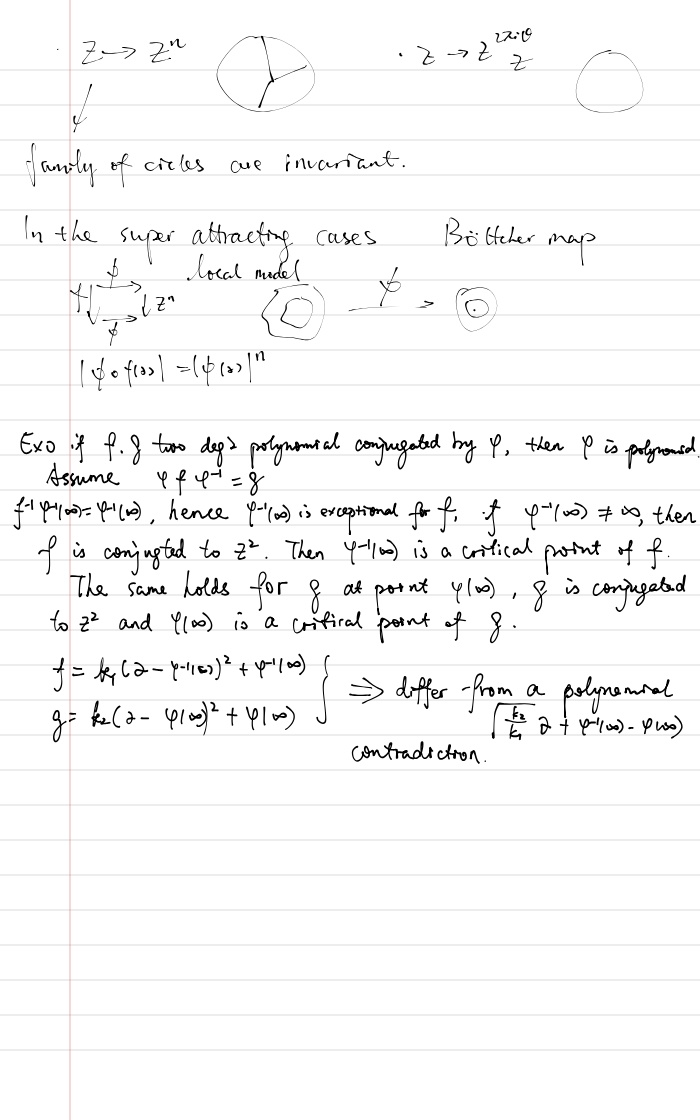 · z → zⁿ · z → z^{2πiθ} z
family of circles are invariant.
In the super attracting cases Böttcher map
ϕ local model
f ↓ → ↓ zⁿ ϕ
ϕ
|ϕ∘f(z)| = |ϕ(z)|ⁿ
Exo if f. g two deg 2 polynomial conjugated by φ, then φ is polynomial.
Assume φ f φ⁻¹ = g
f⁻¹ φ⁻¹(∞) = φ⁻¹(∞), hence φ⁻¹(∞) is exceptional for f, if φ⁻¹(∞) ≠ ∞, then
f is conjugted to z². Then φ⁻¹(∞) is a critical point of f.
The same holds for g at point φ(∞), g is conjugated
to z² and φ(∞) is a critical point of g.
f = k₁(z − φ⁻¹(∞))² + φ⁻¹(∞)
g = k₂(z − φ(∞))² + φ(∞)
⟹ differ from a polynomial
√(k₂/k₁) z + φ⁻¹(∞) − φ(∞)
contradiction.